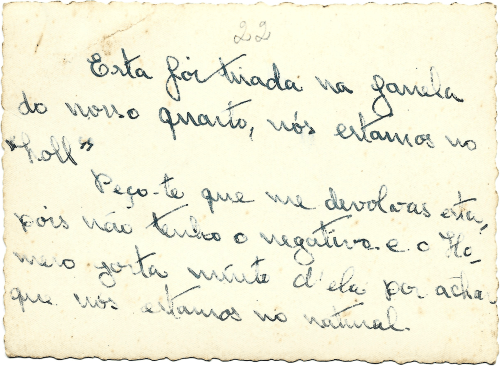 22
Esta foi tirada na janela
do nosso quarto, nós estamos no
"holl"
Peço-te que me devolvas esta,
pois não tenho o negativo e o Ho-
mero gosta muito d'ela por achar
que nós estamos no natural.